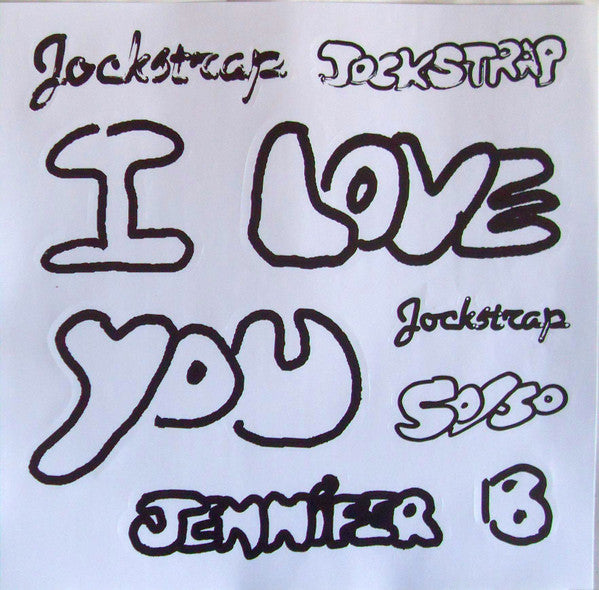 Jockstrap JOCKSTRAP
I LOVE
YOU
Jockstrap
50/50
JENNiFER B